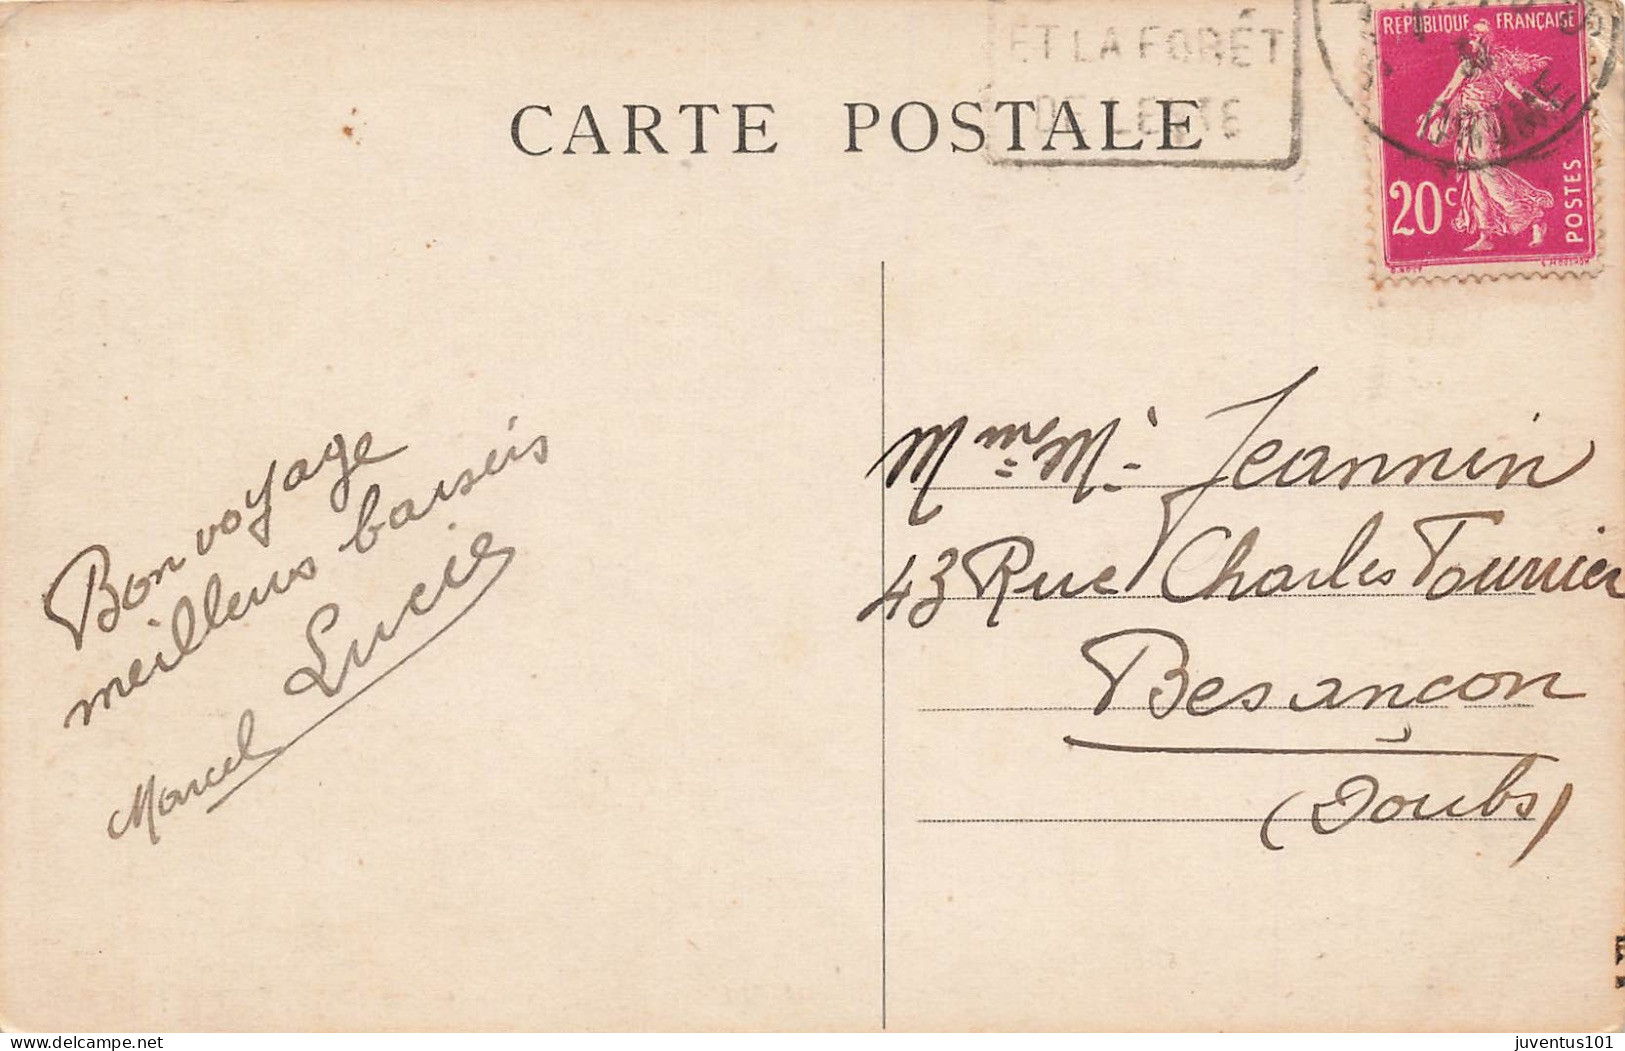 ET LA FORÊT
DE LENTE
RÉPUBLIQUE FRANÇAISE
34
DRÔME
20c
POSTES
CARTE POSTALE
Bon voyage
meilleurs baisers
Lucie
Marcel
Mme Jeannin
43 Rue Charles Tournier
Besançon
(Doubs)
delcampe.net
juventus101